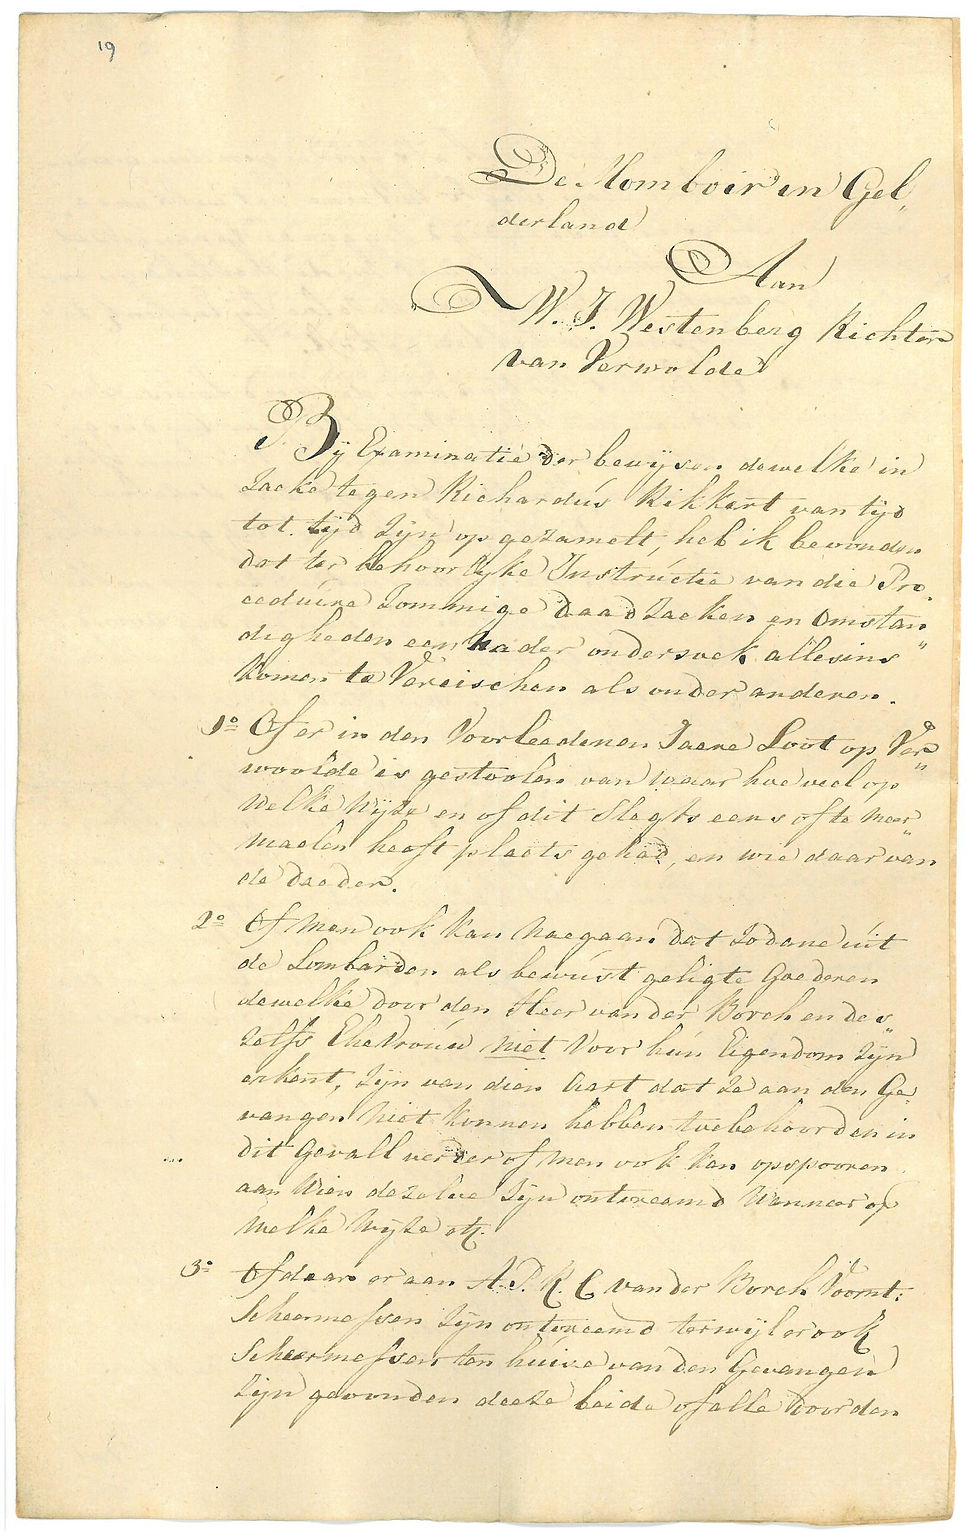 19
De Momboir in Gel„
derland
Aan
W. J. Westenberg Richter
van Verwolde
Bÿ Examinatie der bewÿsen dewelke in
Zaeke tegen Richardús Rikkert van tÿd
tot tÿd Zÿn op gezamelt, heb ik bevonden
dat ter behoorlÿke Instrúctie van die Pro„
cedúíre Zommige daad Zaeken en Omstan„
digheden een nader ondersoek allesins
komen te Vereischen als onder anderen.
1º Of er in den Voorleedenen Jaare Loot op Ver„
woolde is gestoolen van waar hoe veel op
Welke Wÿze en of dit Slegts eens of te Meer„
maelen heeft plaets gehad, en wie daar van
de daeder.
2º Of Men ook kan Naegaan dat Zodane úit
de Lombarden als bewúst geligte Goederen
dewelke door den Heer van der Borch en des„
Zelfs Ehevroúw niet Voor hún Eigendom Zÿn
erkent, Zÿn van dien Aart dat Ze aan den Ge„
vangen Niet konnen hebben toebehoorden in
dit Gevall verder of Men ook kan opspooren
aan Wien dezelve Zÿn ontvreemd Wanneer op
Welke Wÿze etc.
3º Of daar er aan A. P. R. C van der Borch Voornt:
Scheermessen Zÿn ontvreemd terwÿl er ook
Scheermessen ten húise van den Gevangen
Zÿn gevonden deeze beide of alle door den